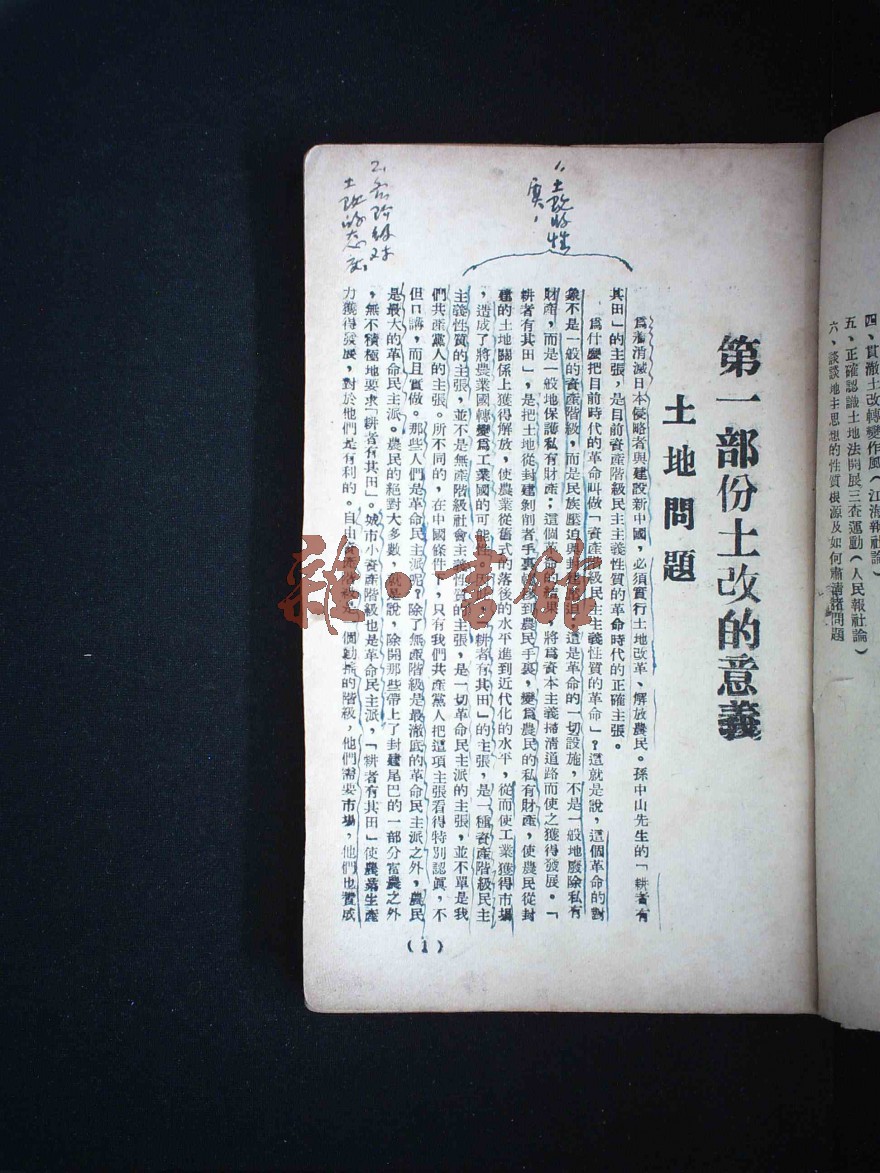 四、貫澈土改轉變作風（江海報社論）
五、正確認識土地法開展三查運動（人民報社論）
六、談談地主思想的性質根源及如何肅清諸問題
第一部份土改的意義
土地問題
爲着消滅日本侵略者與建設新中國，必須實行土地改革、解放農民。孫中山先生的「耕者有
其田」的主張，是目前資產階級民主主義性質的革命時代的正確主張。
爲什麽把目前時代的革命叫做「資產階級民主主義性質的革命」？這就是說，這個革命的對
象不是一般的資產階級，而是民族壓迫與封建壓迫，這是革命的一切設施，不是一般地廢除私有
財產，而是一般地保護私有財產；這個革命的結果，將爲資本主義掃清道路而使之獲得發展。「
耕者有其田」，是把土地從封建剝削者手裏轉移到農民手裏，變爲農民的私有財產，使農民從封
建的土地關係上獲得解放，使農業從舊式的落後的水平進到近代化的水平，從而使工業獲得市場
，造成了將農業國轉變爲工業國的可能性。因此，「耕者有其田」的主張，是一種資產階級民主
主義性質的主張，並不是無產階級社會主義性質的主張，是一切革命民主派的主張，並不單是我
們共產黨人的主張。所不同的，在中國條件下，只有我們共產黨人把這項主張看得特別認眞，不
但口講，而且實做。那些人們是革命民主派呢？除了無產階級是最澈底的革命民主派之外，農民
是最大的革命民主派。農民的絕對大多數，就是說，除開那些帶上了封建尾巴的一部分富農之外
，無不積極地要求「耕者有其田」。城市小資產階級也是革命民主派，「耕者有其田」使農業生產
力獲得發展，對於他們是有利的。自由資產階級是一個動搖的階級，他們需要市場，他們也贊成
（1）
1、土改的性
質，
2、各階級对
土改的态度。
雜·書館